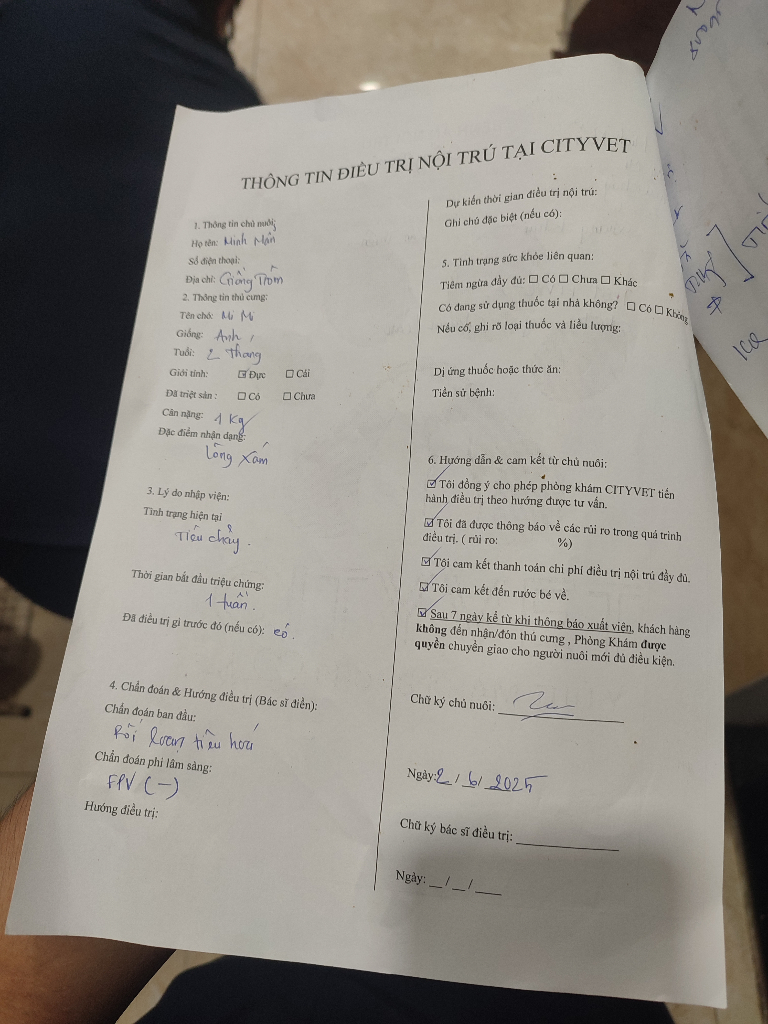 THÔNG TIN ĐIỀU TRỊ NỘI TRÚ TẠI CITYVET
1. Thông tin chủ nuôi:
Họ tên: Minh Mẫn
Số điện thoại:
Địa chỉ: Giồng Trôm
2. Thông tin thú cưng:
Tên chó: Mi Mi
Giống: Anh
Tuổi: 2 tháng
Giới tính: ☑ Đực ☐ Cái
Đã triệt sản : ☐ Có ☐ Chưa
Cân nặng: 1 kg
Đặc điểm nhận dạng:
lông xám
3. Lý do nhập viện:
Tình trạng hiện tại
Tiêu chảy.
Thời gian bắt đầu triệu chứng:
1 tuần.
Đã điều trị gì trước đó (nếu có): có.
4. Chẩn đoán & Hướng điều trị (Bác sĩ điền):
Chẩn đoán ban đầu:
Rối loạn tiêu hoá
Chẩn đoán phi lâm sàng:
FPV (-)
Hướng điều trị:
Dự kiến thời gian điều trị nội trú:
Ghi chú đặc biệt (nếu có):
5. Tình trạng sức khỏe liên quan:
Tiêm ngừa đầy đủ: ☐ Có ☐ Chưa ☐ Khác
Có đang sử dụng thuốc tại nhà không? ☐ Có ☐ Không
Nếu có, ghi rõ loại thuốc và liều lượng:
Dị ứng thuốc hoặc thức ăn:
Tiền sử bệnh:
6. Hướng dẫn & cam kết từ chủ nuôi:
☑ Tôi đồng ý cho phép phòng khám CITYVET tiến
hành điều trị theo hướng được tư vấn.
☑ Tôi đã được thông báo về các rủi ro trong quá trình
điều trị. ( rủi ro: %)
☑ Tôi cam kết thanh toán chi phí điều trị nội trú đầy đủ.
☑ Tôi cam kết đến rước bé về.
☑ Sau 7 ngày kể từ khi thông báo xuất viện, khách hàng
không đến nhận/đón thú cưng , Phòng Khám được
quyền chuyển giao cho người nuôi mới đủ điều kiện.
Chữ ký chủ nuôi:
Ngày: 2 / 6 / 2025
Chữ ký bác sĩ điều trị:
Ngày: __ / __ / ____